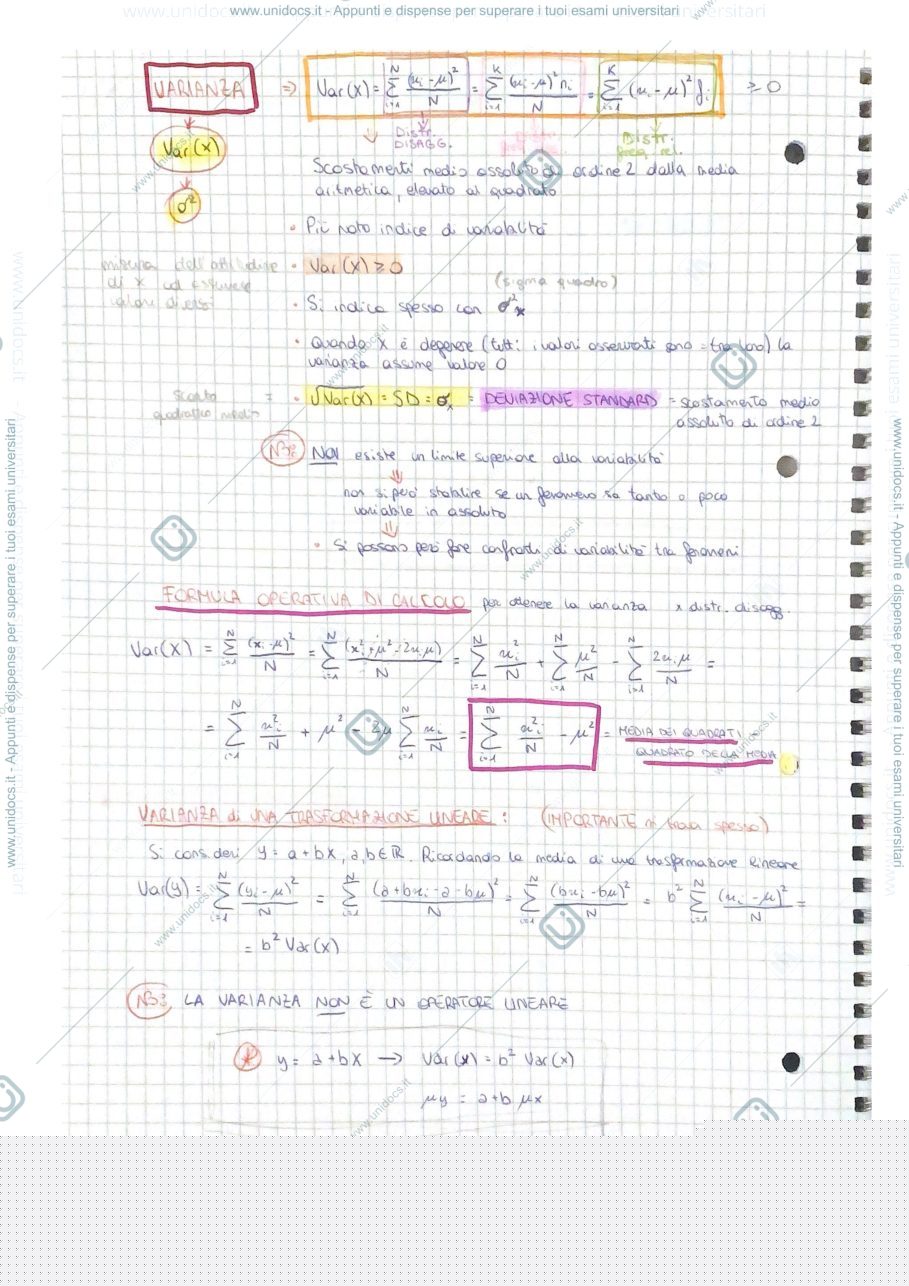 www.unidocs.it - Appunti e dispense per superare i tuoi esami universitari
VARIANZA => Var(X) = Σ_{i=1}^{N} (xi-μ)²/N = Σ_{i=1}^{K} (xi-μ)² ni/N = Σ_{i=1}^{K} (xi-μ)² fi ≥ 0
Var(X)
σ²
Distr. DISAGG.
Distr. freq. rel.
Scostamenti medio assoluto di ordine 2 dalla media
aritmetica, elevato al quadrato
• Più noto indice di variabilità
misura dell'attitudine • Var(X) ≥ 0
di X ad assumere
valori diversi
(sigma quadro)
• Si indica spesso con σ²x
• Quando X è degenere (tutti i valori osservati sono = tra loro) la
varianza assume valore 0
scarto quadratico medio = • √Var(X) = SD = σx = DEVIAZIONE STANDARD = scostamento medio
assoluto di ordine 2
NB: NON esiste un limite superiore alla variabilità
non si può stabilire se un fenomeno sia tanto o poco
variabile in assoluto
• Si possono però fare confronti di variabilità tra fenomeni
FORMULA OPERATIVA DI CALCOLO per ottenere la varianza x distr. disagg.
Var(X) = Σ_{i=1}^{N} (xi-μ)²/N = Σ_{i=1}^{N} (xi²+μ²-2xiμ)/N = Σ_{i=1}^{N} xi²/N + Σ_{i=1}^{N} μ²/N - Σ_{i=1}^{N} 2xiμ/N =
= Σ_{i=1}^{N} xi²/N + μ² - 2μ Σ_{i=1}^{N} xi/N = Σ_{i=1}^{N} xi²/N - μ² = MEDIA DEI QUADRATI -
QUADRATO DELLA MEDIA
VARIANZA di UNA TRASFORMAZIONE LINEARE : (IMPORTANTE si trova spesso)
Si consideri Y = a + bX, a,b ∈ ℝ. Ricordando la media di una trasformazione lineare
Var(y) = Σ_{i=1}^{N} (yi-μ)²/N = Σ_{i=1}^{N} (a+bxi-a-bμ)²/N = Σ_{i=1}^{N} (bxi-bμ)²/N = b² Σ_{i=1}^{N} (xi-μ)²/N =
= b² Var(X)
NB: LA VARIANZA NON È UN OPERATORE LINEARE
* y = a+bX → Var(y) = b² Var(x)
μy = a+b μx
www.unidocs.it - Appunti e dispense per superare i tuoi esami universitari
www.unidocs.it - Appunti e dispense per superare i tuoi esami universitari